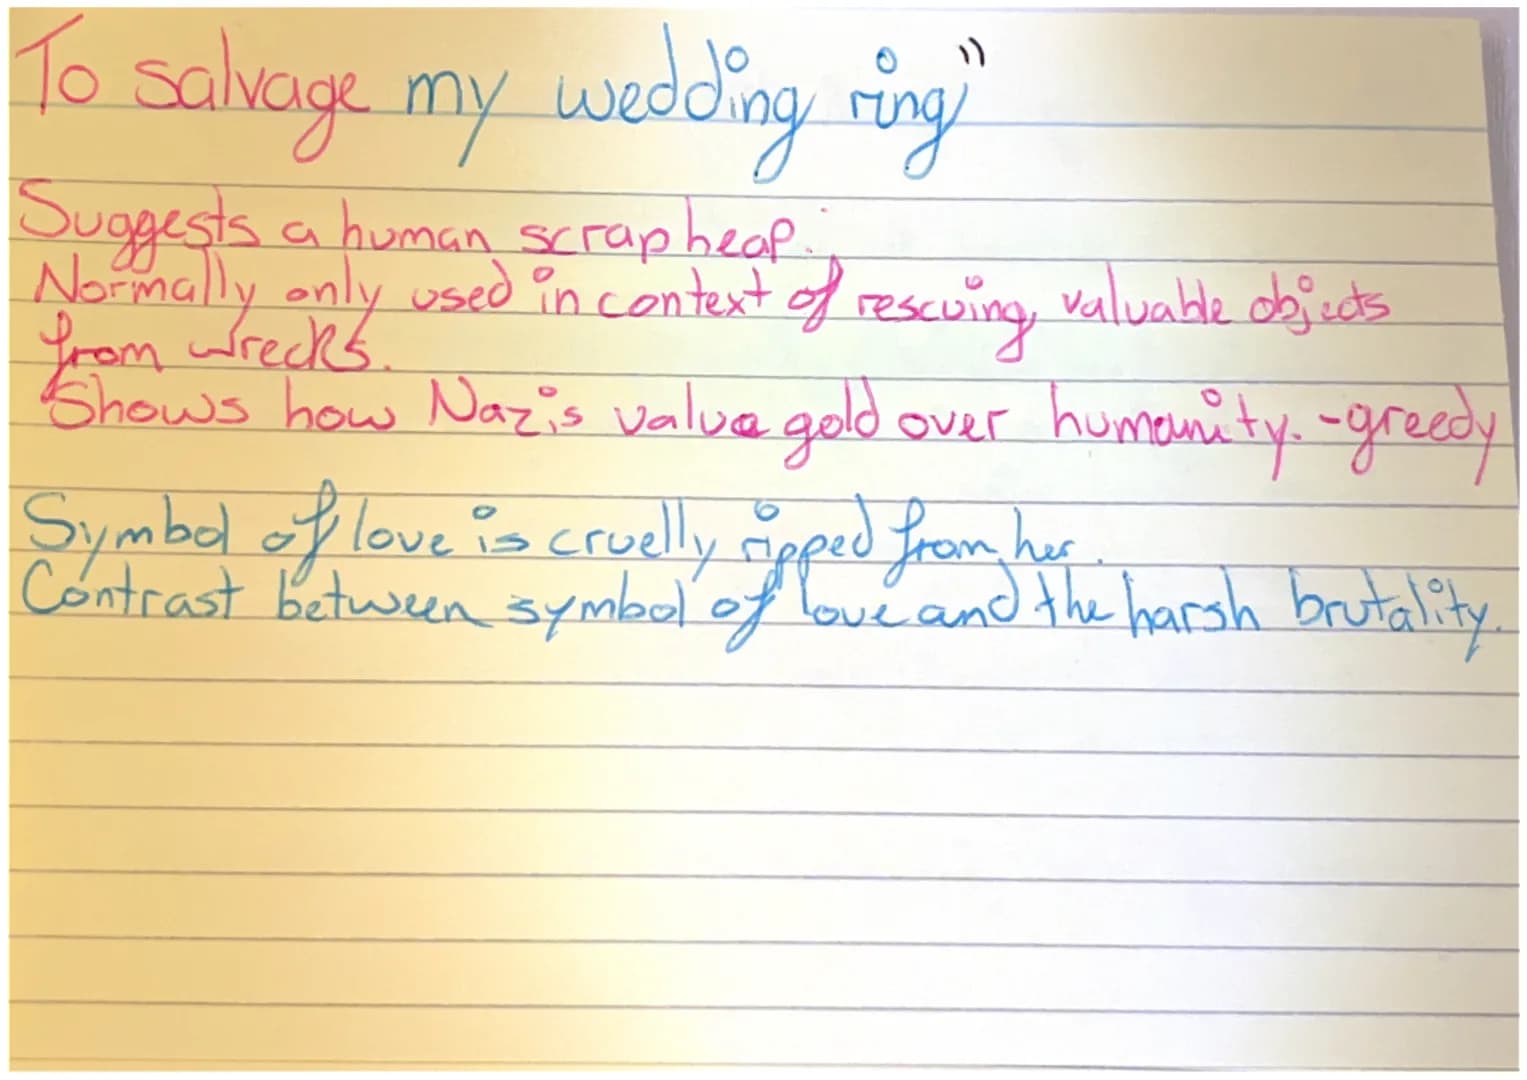 To salvage my wedding ring"
Suggests a human scrap heap.
Normally only used in context of rescuing valuable objects
from wrecks.
Shows how Nazis value gold over humanity. -greedy
Symbol of love is cruelly ripped from her.
Contrast between symbol of love and the harsh brutality.